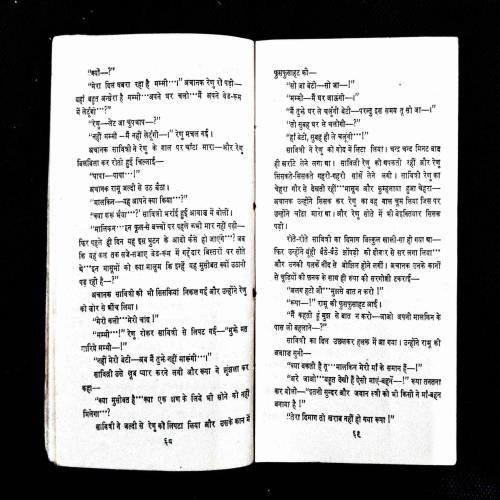 “क्यों—?”
“मेरा दिल घबरा रहा है मम्मी···।” अचानक रेणु रो पड़ी—
यहां बहुत अन्धेरा है मम्मी···अपने घर चलो···मैं अपने बेड-रूम
में लेटूंगी···?”
“रेणु—लेट जा चुपचाप—?”
“नहीं मम्मी—मैं नहीं लेटूंगी—।” रेणु मचल गई।
अचानक सावित्री ने रेणु के गाल पर चांटा मारा—और रेणु
बिलबिला कर रोती हुई चिल्लाई—
“पापा—पापा···!”
अचानक रामू जल्दी से उठ बैठा।
“मालकिन—यह आपने क्या किया···?”
“क्या करूं भैया···?” सावित्री भर्राई हुई आवाज में बोलीं।
“मालकिन···इन फूल-से बच्चों पर पहले कभी मार नहीं पड़ी—
फिर पहले ही दिन यह इस घुटन के आदी कैसे हो जाएंगे···? जब
कि यह कल तक सजे-सजाए बेड-रूम में गद्देदार बिस्तरों पर सोते
थे···इन मासूमों को क्या मालूम कि इन्हें यह मुसीबत क्यों उठानी
पड़ रही है—?”
अचानक सावित्री की भी सिसकियां निकल गईं और उन्होंने रेणु
को जोर से भींच लिया।
“मेरी बच्ची···मेरी चांद !”
“मम्मी···!” रेणु रोकर सावित्री से लिपट गई—“मुझे मत
मारिये मम्मी—!”
“नहीं मेरी बेटी—अब मैं तुझे नहीं मारूंगी···।”
सावित्री उसे खूब प्यार करने लगी और रूपा ने झुंझला कर
कहा—
“क्या मुसीबत है···क्या एक क्षण के लिये भी सोने को नहीं
मिलेगा···?
सावित्री ने जल्दी से रेणु को लिपटा लिया और उसके कान में
६८
फुसफुसाहट की—
“सो जा बेटी—सो जा—!”
“मम्मी—मैं घर जाऊंगी—।”
“मैं तुझे घर ले चलूंगी बेटी—परन्तु इस समय तू सो जा—।”
“तो सुबह घर ले चलोगी—?”
“हां बेटी, सुबह ही ले चलूंगी···!”
सावित्री ने रेणु को गोद में लिटा लिया। चन्द चन्द मिनट बाद
ही खर्राटे लेने लगा था। सावित्री रेणु को थपकती रहीं और रेणु
सिसकते-सिसकते गहरी-गहरी सांसें लेने लगी। सावित्री रेणु का
चेहरा गौर से देखती रहीं···मासूम और कुम्हलाया हुआ चेहरा—
अचानक उन्होंने सिसक कर रेणु का वह गाल चूम लिया जिस पर
उन्होंने चांटा मारा था। और रेणु सोते में भी बेइख्तियार सिसक
पड़ी।
रोते-रोते सावित्री का दिमाग बिल्कुल खाली-सा हो गया था—
फिर उन्होंने यूंही बैठे-बैठे झोंपड़ी की दीवार से सर लगा लिया···
और उनकी पलकें नींद से बोझिल होने लगीं। अचानक उनके कानों
से चूड़ियों की छनक के साथ ही रूपा की सरगोशी टकराई—
“अलग हटो जी···मुझसे बात न करो !”
“रूपा—!” रामू की फुसफुसाहट आई।
“मैं कहती हूं मुझ से बात न करो—जाओ अपनी मालकिन के
पास जो बहलाने—?”
सावित्री का दिल उछलकर हलक में आ गया। उन्होंने रामू की
आवाज सुनी—
“क्या बकती है तू···मालकिन मेरी मां के समान हैं—!”
“अरे जाओ···बहुत देखी हैं ऐसी माएं-बहनें—!” रूपा तनतना
कर बोली—“इतनी सुन्दर और जवान स्त्री को भी किसी ने मां-बहन
बनाया है !”
“तेरा दिमाग तो खराब नहीं हो गया रूपा !”
६९